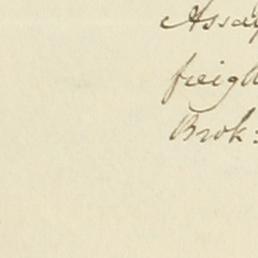 Assay
freigh
Brok: